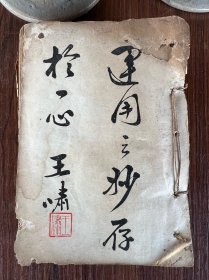 運用之妙存
於一心 王啸